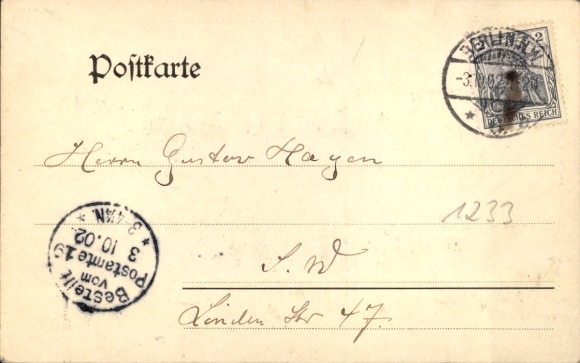 Postkarte
BERLIN.N.W.
2
-3.10.02
DEUTSCHES REICH
Herrn Gustav Hagen
1233
Bestellt
vom
Postamte 19
3 10.02
* 3-4½N. *
S. W
Linden Str 47.